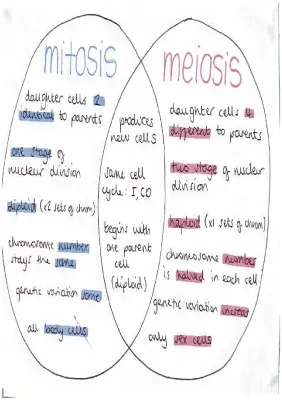 mitosis
daughter cells 2
identical to parents
one stage of
nuclear division
diploid (x2 sets of chrom)
chromosome number
stays the same
genetic variation same
all body cells
produces
new cells
same cell
cycle: I,
begins with
one parent
cell
(diploid)
meiosis
daughter cells 4
different to parents
two stage of nuclear
division
haploid (x1 sets of chrom)
chromosome number
is halved in each cell
genetic variation
only sex cells